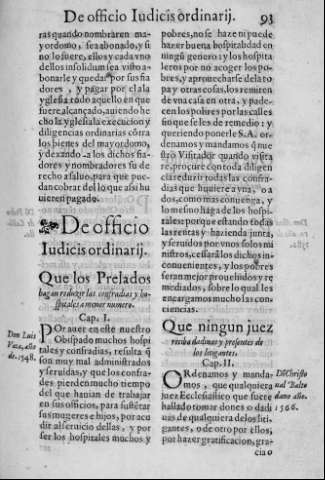 De officio Iudicis ordinarij. 93
ras quando nombraren ma-
yordomo, sea abonado, y si
no lo fuere, ellos y cada vno
dellos insolidum sea visto a-
bonarle y quedar por sus fia
dores, y pagar por el a la
yglesia todo aquello en que
fuere alcançado, auiendo he
cho la yglesia la execucion y
diligencias ordinarias cõtra
los bienes del mayordomo,
y dexando a los dichos fia-
dores y nombradores su de-
recho a saluo, para que pue-
dan cobrar del lo que assi hu
uieren pagado.
De officio
Iudicis ordinarij.
Que los Prelados
hagan reduzir las confradias y ho-
spitales a menor numero.
Cap. I.
Don Luis
Vaca, año
de. 1548.
POr auer en este nuestro
Obispado muchos hospi
tales y confradias, resulta q̃
son muy mal administrados
y seruidas, y que los confra-
des pierden mucho tiempo
del que hauian de trabajar
en sus officios, para sustẽtar
sus mugeres e hijos, por acu
dir al seruicio dellas, y por
ser los hospitales muchos y
pobres, no se haze ni puede
hazer buena hospitalidad en
ningũ genero: y los hospita
leros por no acoger los po-
bres, y aprouecharse de la ro
pa y otras cosas, los remiten
de vna casa en otra, y pade-
cen los pobres por las calles
sin que se les de remedio: y
queriendo ponerle S.A. or-
denamos y mandamos q̃ nue
stro Visitador quando visita
re, procure con toda diligen
cia reduzir todas las confra-
dias que huuiere a vna, o a
dos, como mas conuenga, y
lo mesmo haga de los hospi-
tales: porque estando todas
las rentas y hazienda junta,
y seruidos por vnos solos mi
nistros, cessarã los dichos in-
conuenientes, y los pobres
seran mejor proueidos y re
mediados, sobre lo qual les
encargamos mucho las con-
ciencias.
Que ningun juez
reciba dadiuas y presentes de
los litigantes.
Cap. II.
ORdenamos y manda-
mos, que qualquiera
juez Ecclesiastico que fuere
hallado tomar dones o dadi
uas de qualquiera de los liti-
gantes, o de otro por ellos,
por hazer gratificacion, gra-
cia o